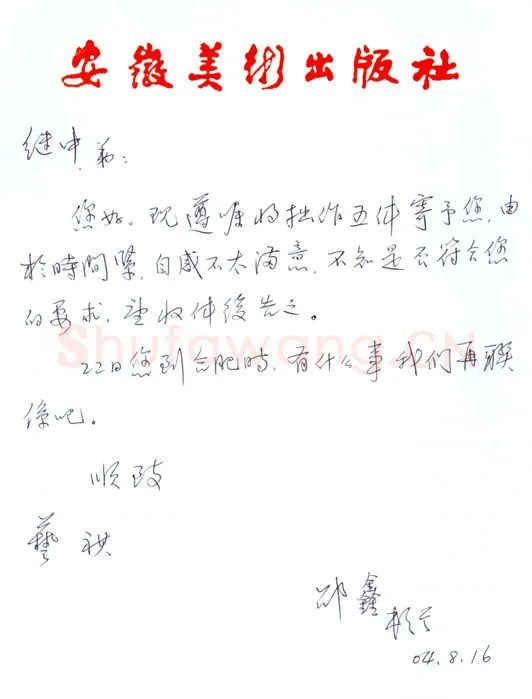 安徽美術出版社
继中弟：
您好，现遵嘱将拙作五件寄予您，由
於時間緊，自感不太满意，不知是否符合您
的要求，望收件後告之。
22日您到合肥時，有什么事我们再联
係吧。
顺致
藝祺
邵鑫
04.8.16
Shufawang.CN